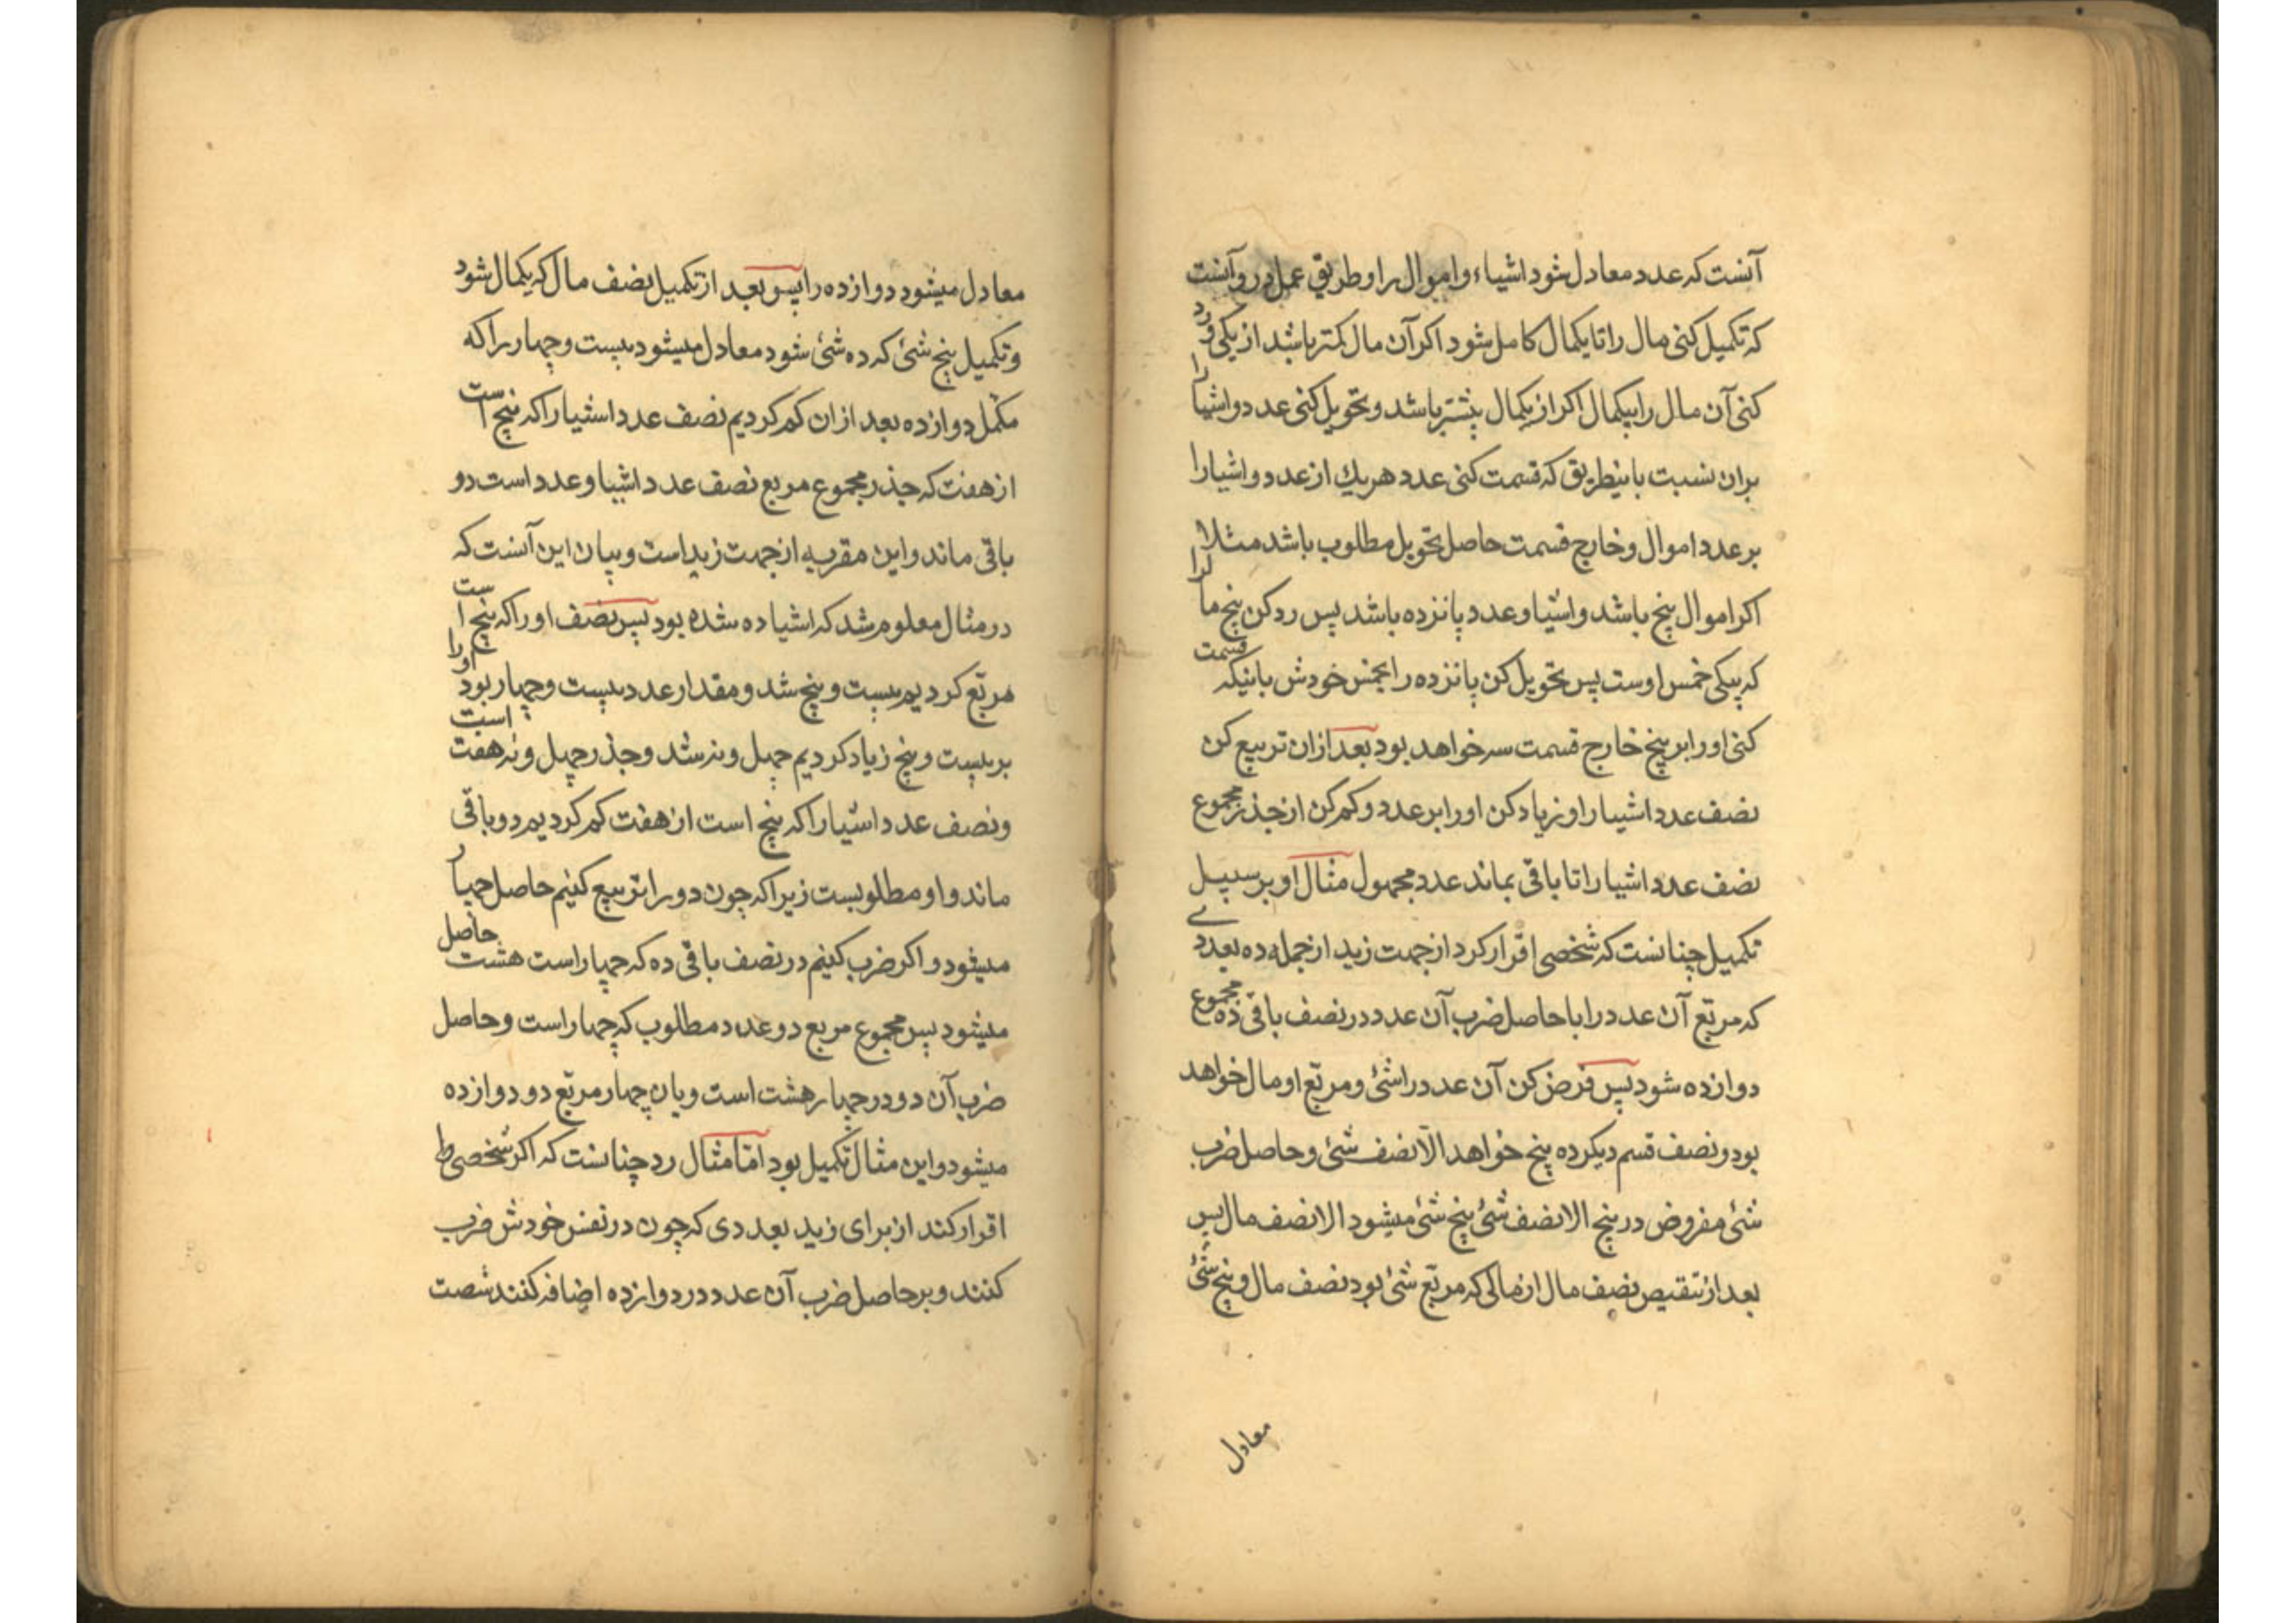 آنست که عدد معادل شود اشیاء و اموال را و طریق عمل درو آنست
که تکمیل کنی مال را تا یکمال کامل شود اکر آن مال کمتر باشد از یکی و رد
کنی آن مال را بیکمال اکر از یکمال بیشتر باشد و تحویل کنی عدد و اشیا را
بران نسبت باینطریق که قسمت کنی عدد هریك از عدد و اشیا را
بر عدد اموال و خارج قسمت حاصل تحویل مطلوب باشد مثلا
اکر اموال پنج باشد و اشیا و عدد پانزده باشد پس رد کن پنج مال را
که بیکی خمس اوست پس تحویل کن پانزده را بجنس خودش باینکه قسمت
کنی او را بر پنج خارج قسمت سه خواهد بود بعد ازان تربیع کن
نصف عدد اشیا را و زیاد کن او را بر عدد و کم کن از جذر مجموع
نصف عدد اشیا را تا باقی بماند عدد مجهول مثال او بر سبیل
تکمیل چنانست که شخصی اقرار کرد از جهت زید از جمله ده بعددے
که مربّع آن عدد را با حاصل ضرب آن عدد در نصف باقی ده مجموع
دوازده شود پس فرض کن آن عدد را شئ و مربّع او مال خواهد
بود و نصف قسم دیکر ده پنج خواهد الّا نصف شئ و حاصل ضرب
شئ مفروض در پنج الا نصف شئ پنج شئ میشود الا نصف مال پس
بعد از تنقیص نصف مال از مالی که مربّع شئ بود نصف مال و پنج شئ
معادل
معادل میشود دوازده را پس بعد از تکمیل نصف مال که یکمال شود
و تکمیل پنج شئ که ده شئ شود معادل میشود بیست و چهار را که
مکمل دوازده بعد ازان کم کردیم نصف عدد اشیا را که پنج است
از هفت که جذر مجموع مربع نصف عدد اشیا و عدد است دو
باقی ماند و این مقربه از جهت زید است و بیان این آنست که
در مثال معلوم شد که اشیا ده شده بود پس نصف او را که پنج است
مربّع کردیم بیست و پنج شد و مقدار عدد بیست و چهار بود او را
بر بیست و پنج زیاد کردیم چهل و نه شد و جذر چهل و نه هفت است
و نصف عدد اشیا را که پنج است از هفت کم کردیم دو باقی
ماند و او مطلوبست زیرا که چون دو را تربیع کنیم حاصل چهار
میشود و اکر ضرب کنیم در نصف باقی ده که چهار است هشت حاصل
میشود پس مجموع مربع دو عدد مطلوب که چهار است و حاصل
ضرب آن دو در چهار هشت است و بان چهار مربّع دو دوازده
میشود و این مثال تکمیل بود امّا مثال رد چنانست که اکر شخصی
اقرار کند از برای زید بعددی که چون در نفس خودش ضرب
کنند و بر حاصل ضرب آن عدد در دوازده اضافه کنند شصت